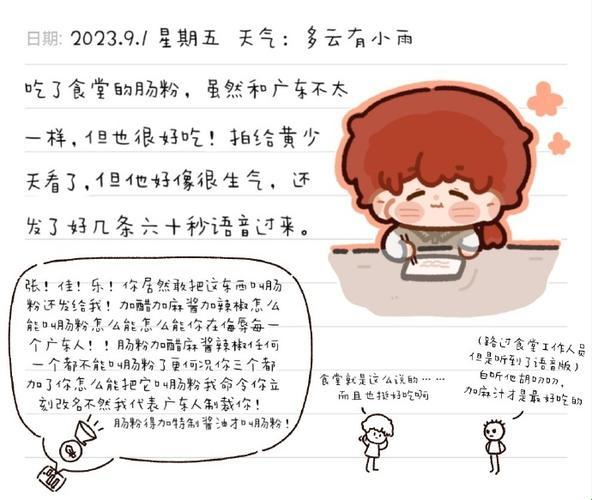 日期: 2023.9.1 星期五 天气：多云有小雨
吃了食堂的肠粉，虽然和广东不太
一样，但也很好吃！拍给黄少
天看了，但他好像很生气，还
发了好几条六十秒语音过来。
张！佳！乐！你居然敢把这东西叫肠
粉还发给我！加醋加麻酱加辣椒怎么
能叫肠粉怎么能怎么能你在侮辱每一
个广东人！！肠粉加醋麻酱辣椒任何
一个都不能叫肠粉了更何况你三个都
加了你怎么能把它叫肠粉我命令你立
刻改名不然我代表广东人制裁你！
肠粉得加特制酱油才叫肠粉！
食堂就是这么说的……
而且也挺好吃啊
（路过食堂工作人员
但是听到了语音版）
自听他胡叨叨，
加麻汁才是最好吃的